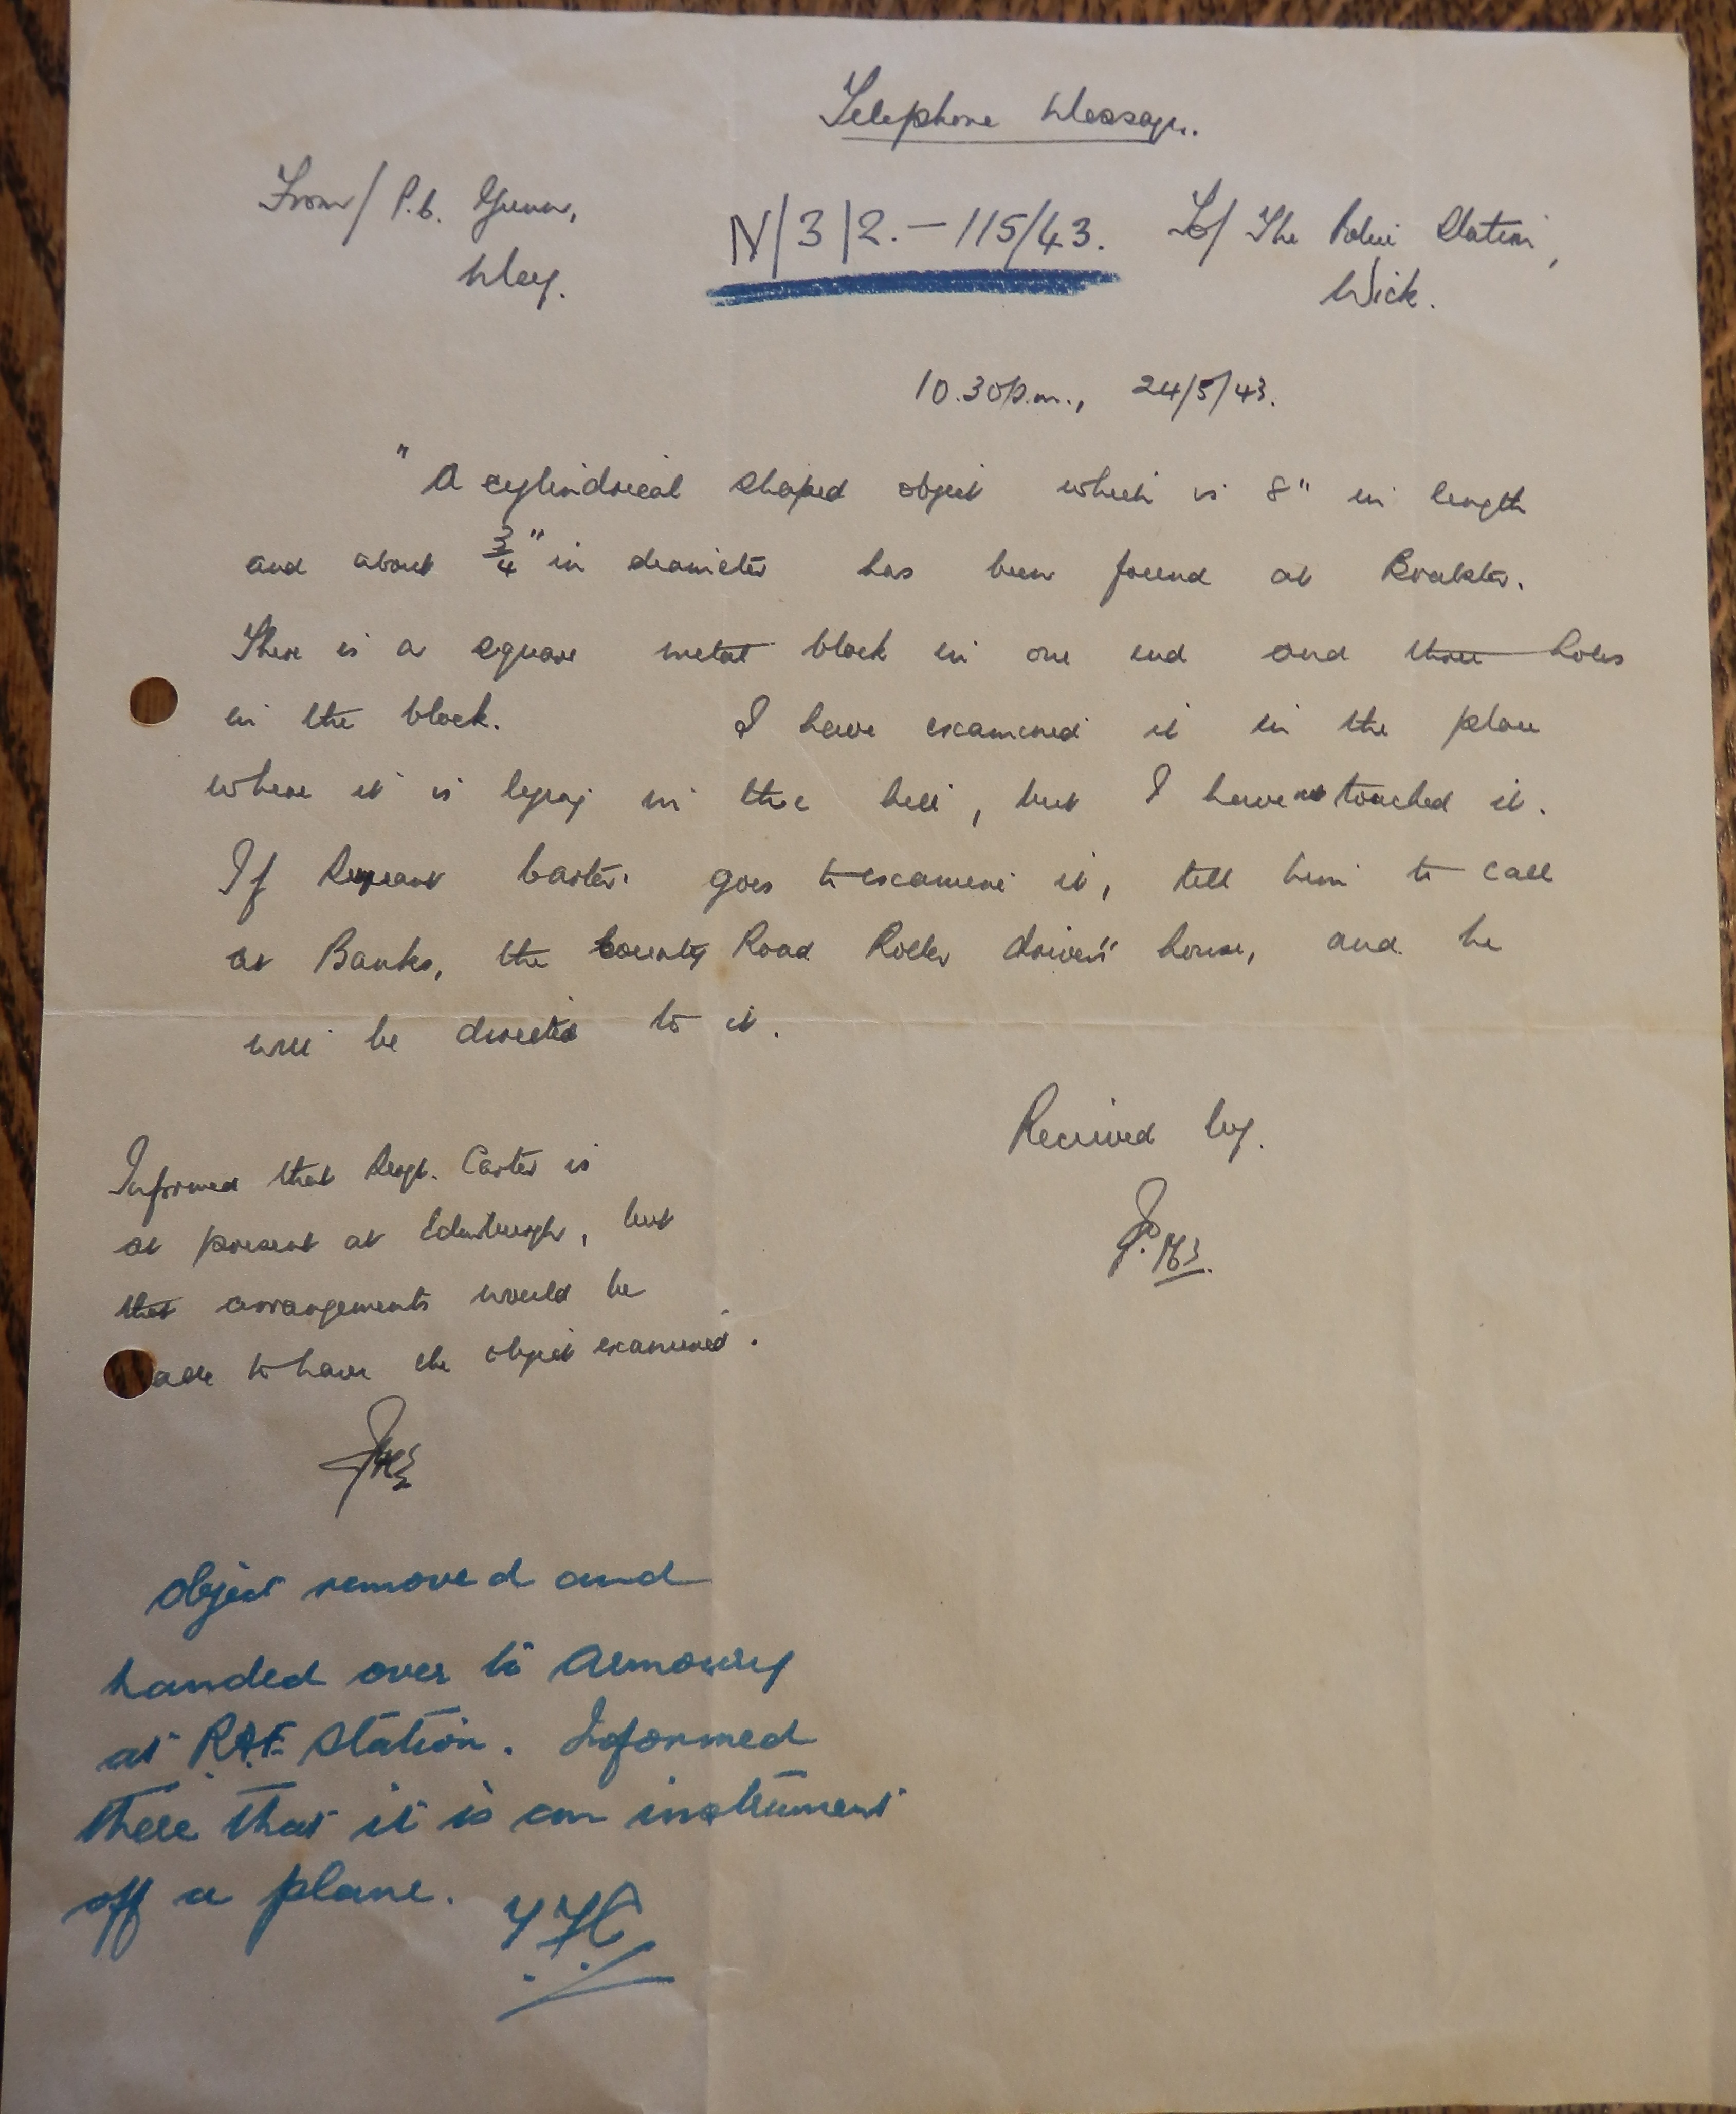 Telephone Message.
From/ P.C. Gunn,
Mey.
N/3/2.-115/43.
To/ The Police Station,
Wick.
10.30p.m., 24/5/43.
"A cylindrical shaped object which is 8" in length
and about 3/4" in diameter has been found at Brabster.
There is a square metal block in one end and three holes
in the block. I have examined it in the place
where it is lying in the hill, but I have not touched it.
If Sergeant Carter goes to examine it, tell him to call
at Banks, the County Road Roller driver's house, and he
will be directed to it.
Received by.
Informed that Sergt. Carter is
at present at Edinburgh, but
that arrangements would be
made to have the object examined.
Object removed and
handed over to Armoury
at R.A.F. Station. Informed
there that it is an instrument
off a plane.